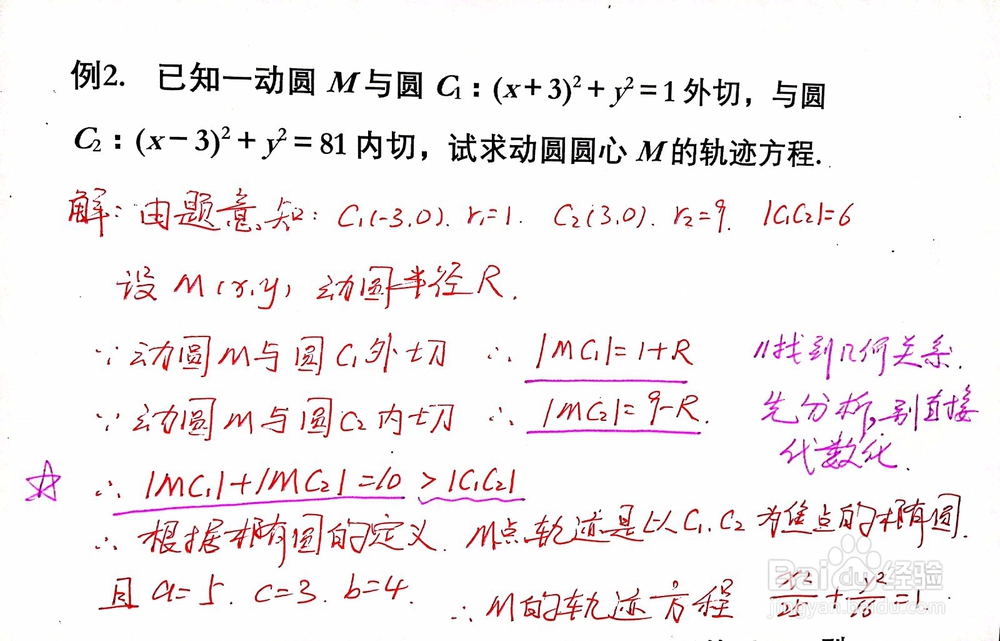 例2. 已知一动圆 M 与圆 C₁：(x+3)²+y²=1 外切，与圆
C₂：(x-3)²+y²=81 内切，试求动圆圆心 M 的轨迹方程.
解：由题意知：C₁(-3,0). r₁=1. C₂(3,0). r₂=9. |C₁C₂|=6
设 M(x,y) 动圆半径R.
∵动圆M与圆C₁外切 ∴ |MC₁|=1+R
∵动圆M与圆C₂内切 ∴ |MC₂|=9-R.
//找到几何关系.
先分析,别直接
代数化.
☆ ∴ |MC₁|+|MC₂|=10 > |C₁C₂|
∴ 根据椭圆的定义. M点轨迹是以C₁.C₂为焦点的椭圆.
且 a=5. c=3. b=4. ∴M的轨迹方程 x²/25+y²/16=1
Baidu经验
jingyan.baidu.com